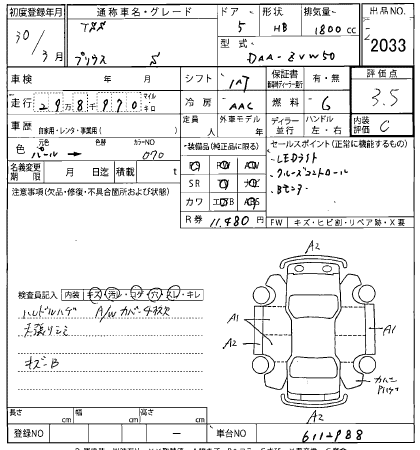 初度登録年月 通称車名・グレード ドア 形状 排気量 出品NO.
30/3月 プリウス S 5 HB 1800cc 2033
型式 DAA-ZVW50
車検 年 月 シフト 保証書 有・無 評価点
走行 マイル キロ 冷房 AAC 燃料 G 3.5
車歴 自家用・レンタ・事業用( ) 定員 人 外車モデル 年 ディーラー 並行 ハンドル 左・右 内装評価 C
色 元色 パール → 色替 カラーNO 070
装備品(純正品に限る) セールスポイント(正常に機能するもの)
LEDライト
クルーズコントロール
Bモニタ
名義変更期限 月 日迄 積載 t
SR
カワ
注意事項(欠品・修復・不具合箇所および状態)
R券 11,480円 FW キズ・ヒビ割・リペア跡・X要
検査員記入 内装 キズ・汚レ・コゲ・穴・スレ・キレ
ハンドルハゲ A/Wカバーキズ
天張りシミ
キズ-B
A2
A1
A2
A1
A2
長さ cm 幅 cm 高さ cm
登録NO ー 車台NO 6112988